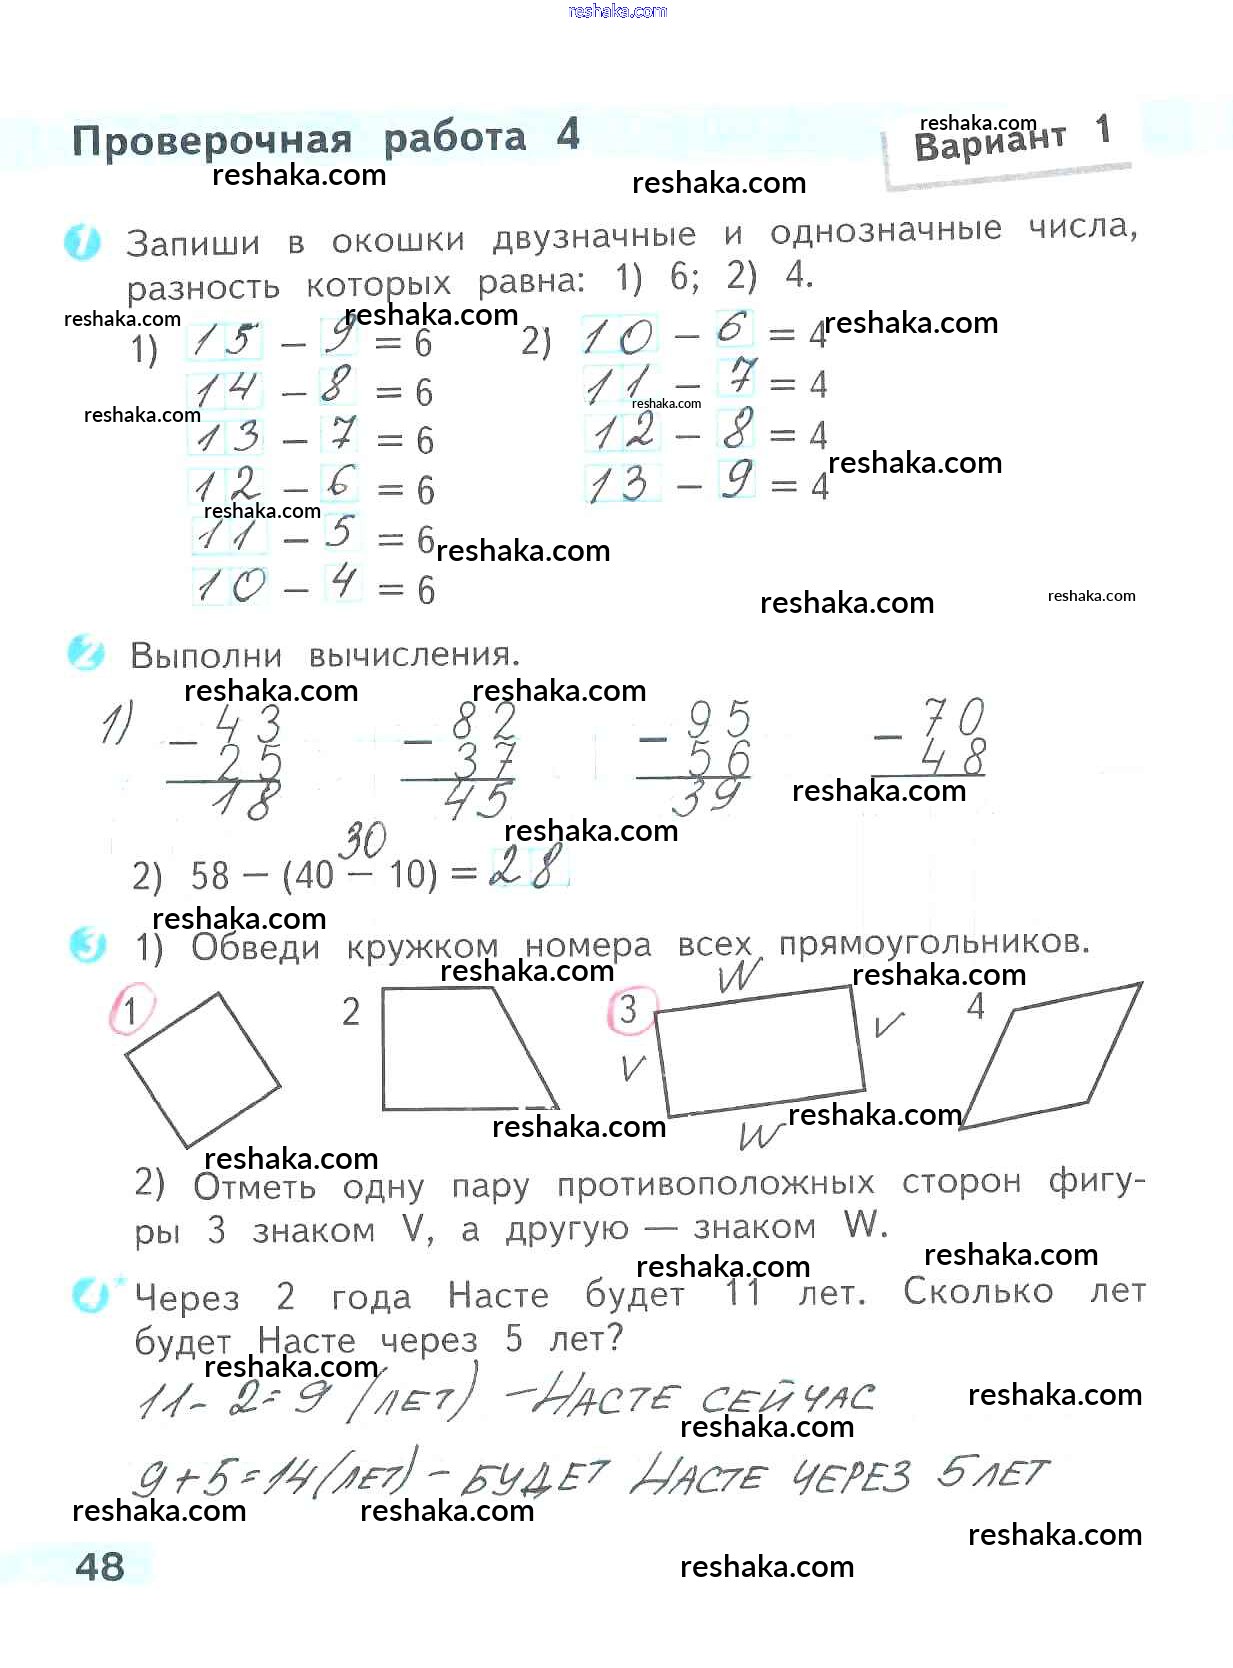 reshaka.com
Проверочная работа 4
reshaka.com
Вариант 1
reshaka.com
reshaka.com
1 Запиши в окошки двузначные и однозначные числа,
разность которых равна: 1) 6; 2) 4.
reshaka.com
reshaka.com
reshaka.com
1) 15 − 9 = 6 2) 10 − 6 = 4
14 − 8 = 6 11 − 7 = 4
reshaka.com
reshaka.com
13 − 7 = 6 12 − 8 = 4
reshaka.com
12 − 6 = 6 13 − 9 = 4
reshaka.com
11 − 5 = 6
reshaka.com
10 − 4 = 6
reshaka.com
reshaka.com
2 Выполни вычисления.
reshaka.com
reshaka.com
1) − 43 − 82 − 95 − 70
25 37 56 48
18 45 39
reshaka.com
reshaka.com
30
2) 58 − (40 − 10) = 28
reshaka.com
3 1) Обведи кружком номера всех прямоугольников.
reshaka.com
W
reshaka.com
1 2 3 4
V
V
reshaka.com
reshaka.com
W
reshaka.com
2) Отметь одну пару противоположных сторон фигу-
ры 3 знаком V, а другую — знаком W.
reshaka.com
reshaka.com
4* Через 2 года Насте будет 11 лет. Сколько лет
будет Насте через 5 лет?
reshaka.com
11-2=9 (лет) – НАСТЕ СЕЙЧАС
reshaka.com
reshaka.com
9+5=14(лет) – БУДЕТ НАСТЕ ЧЕРЕЗ 5 ЛЕТ
reshaka.com
reshaka.com
reshaka.com
48
reshaka.com